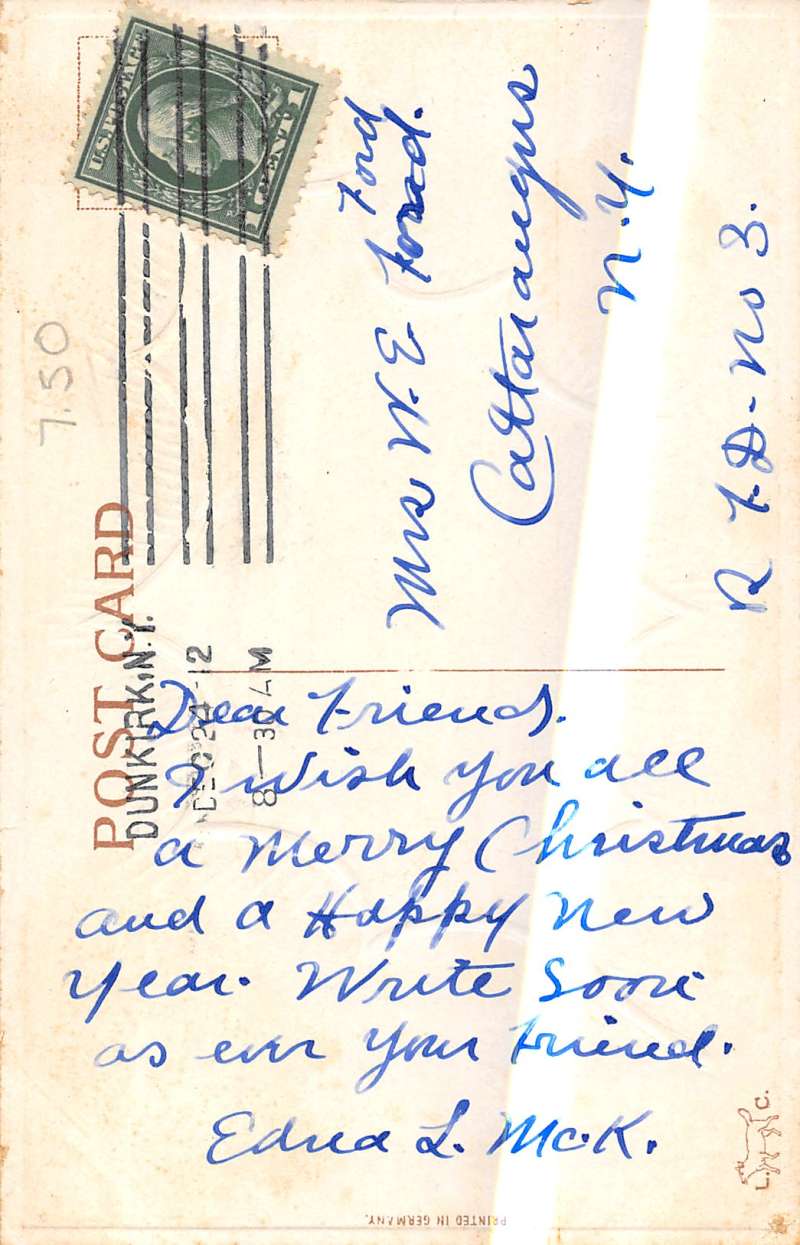 POST CARD
DUNKIRK, N.Y.
DEC 24 -12
8-30 AM
U.S. POSTAGE
1 CENT 1
7.50
Ford
Mrs W. E Forad.
Cattaraugus
N. Y.
R F. D- No 3.
Dear Friend.
I wish you all
a Merry Christmas
and a Happy New
Year. Write Soon
as ever your Friend.
Edna L. McK.
L. C.
PRINTED IN GERMANY.